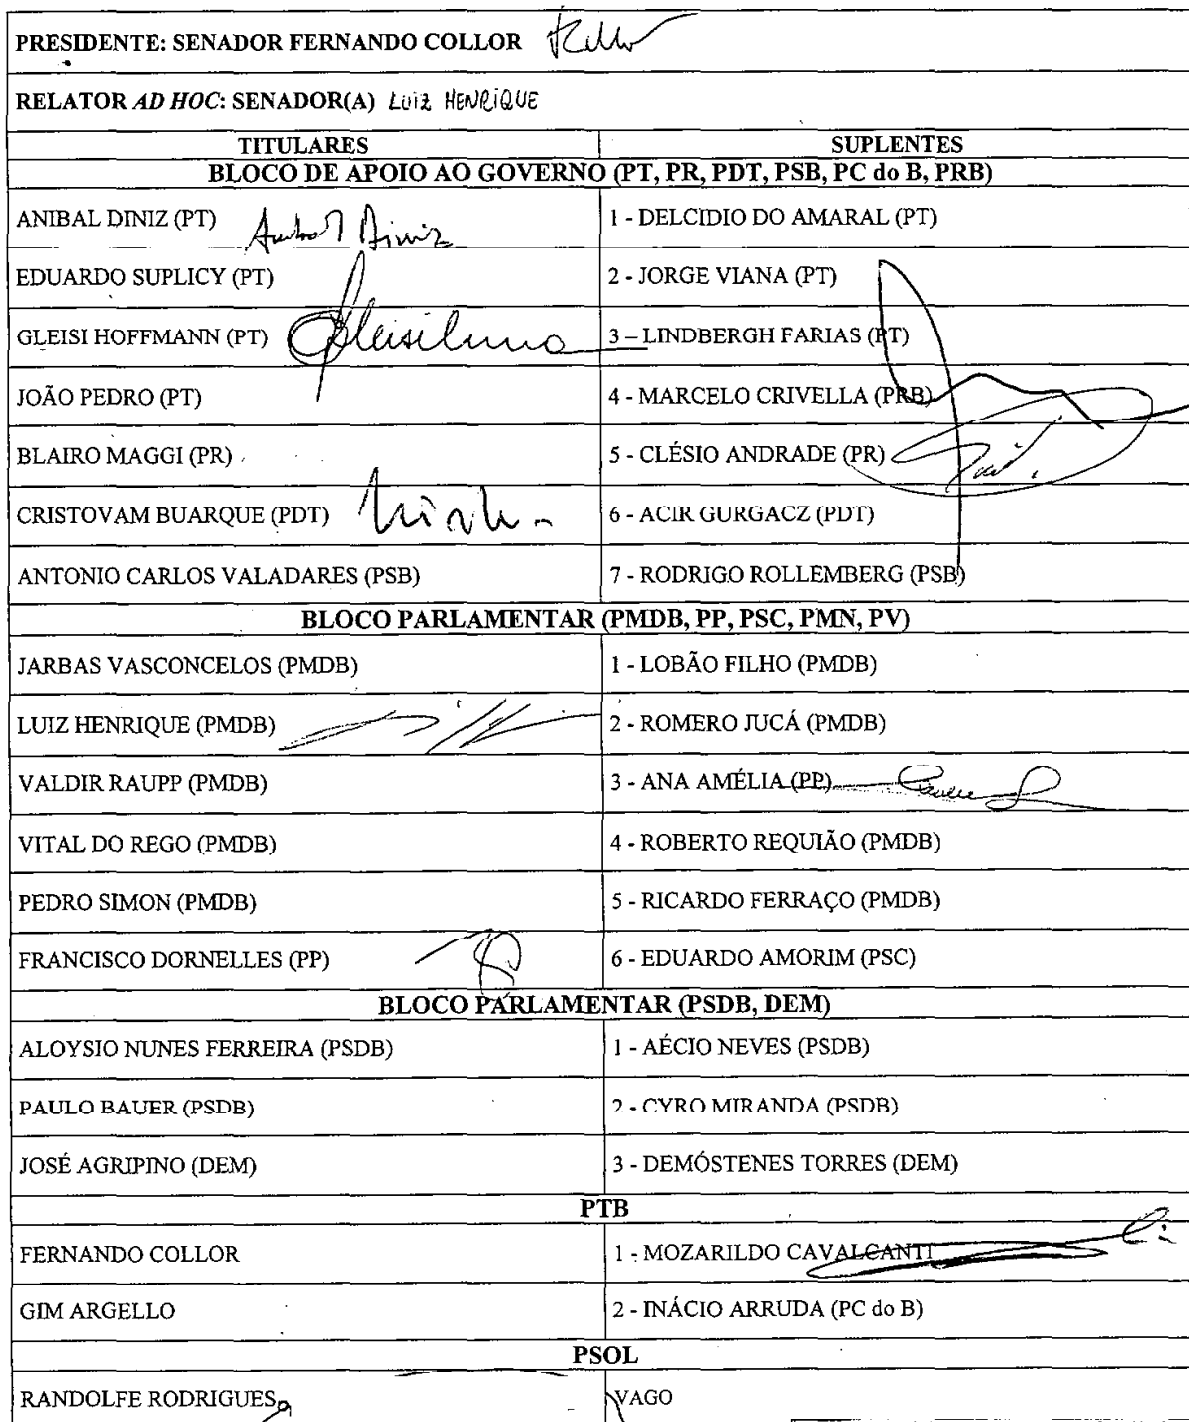 PRESIDENTE: SENADOR FERNANDO COLLOR
RELATOR AD HOC: SENADOR(A) LUIZ HENRIQUE
TITULARES SUPLENTES
BLOCO DE APOIO AO GOVERNO (PT, PR, PDT, PSB, PC do B, PRB)
ANIBAL DINIZ (PT) Anibal Diniz 1 - DELCIDIO DO AMARAL (PT)
EDUARDO SUPLICY (PT) 2 - JORGE VIANA (PT)
GLEISI HOFFMANN (PT) 3 – LINDBERGH FARIAS (PT)
JOÃO PEDRO (PT) 4 - MARCELO CRIVELLA (PRB)
BLAIRO MAGGI (PR) 5 - CLÉSIO ANDRADE (PR)
CRISTOVAM BUARQUE (PDT) 6 - ACIR GURGACZ (PDT)
ANTONIO CARLOS VALADARES (PSB) 7 - RODRIGO ROLLEMBERG (PSB)
BLOCO PARLAMENTAR (PMDB, PP, PSC, PMN, PV)
JARBAS VASCONCELOS (PMDB) 1 - LOBÃO FILHO (PMDB)
LUIZ HENRIQUE (PMDB) 2 - ROMERO JUCÁ (PMDB)
VALDIR RAUPP (PMDB) 3 - ANA AMÉLIA (PP)
VITAL DO REGO (PMDB) 4 - ROBERTO REQUIÃO (PMDB)
PEDRO SIMON (PMDB) 5 - RICARDO FERRAÇO (PMDB)
FRANCISCO DORNELLES (PP) 6 - EDUARDO AMORIM (PSC)
BLOCO PARLAMENTAR (PSDB, DEM)
ALOYSIO NUNES FERREIRA (PSDB) 1 - AÉCIO NEVES (PSDB)
PAULO BAUER (PSDB) 2 - CYRO MIRANDA (PSDB)
JOSÉ AGRIPINO (DEM) 3 - DEMÓSTENES TORRES (DEM)
PTB
FERNANDO COLLOR 1 - MOZARILDO CAVALCANTI
GIM ARGELLO 2 - INÁCIO ARRUDA (PC do B)
PSOL
RANDOLFE RODRIGUES VAGO